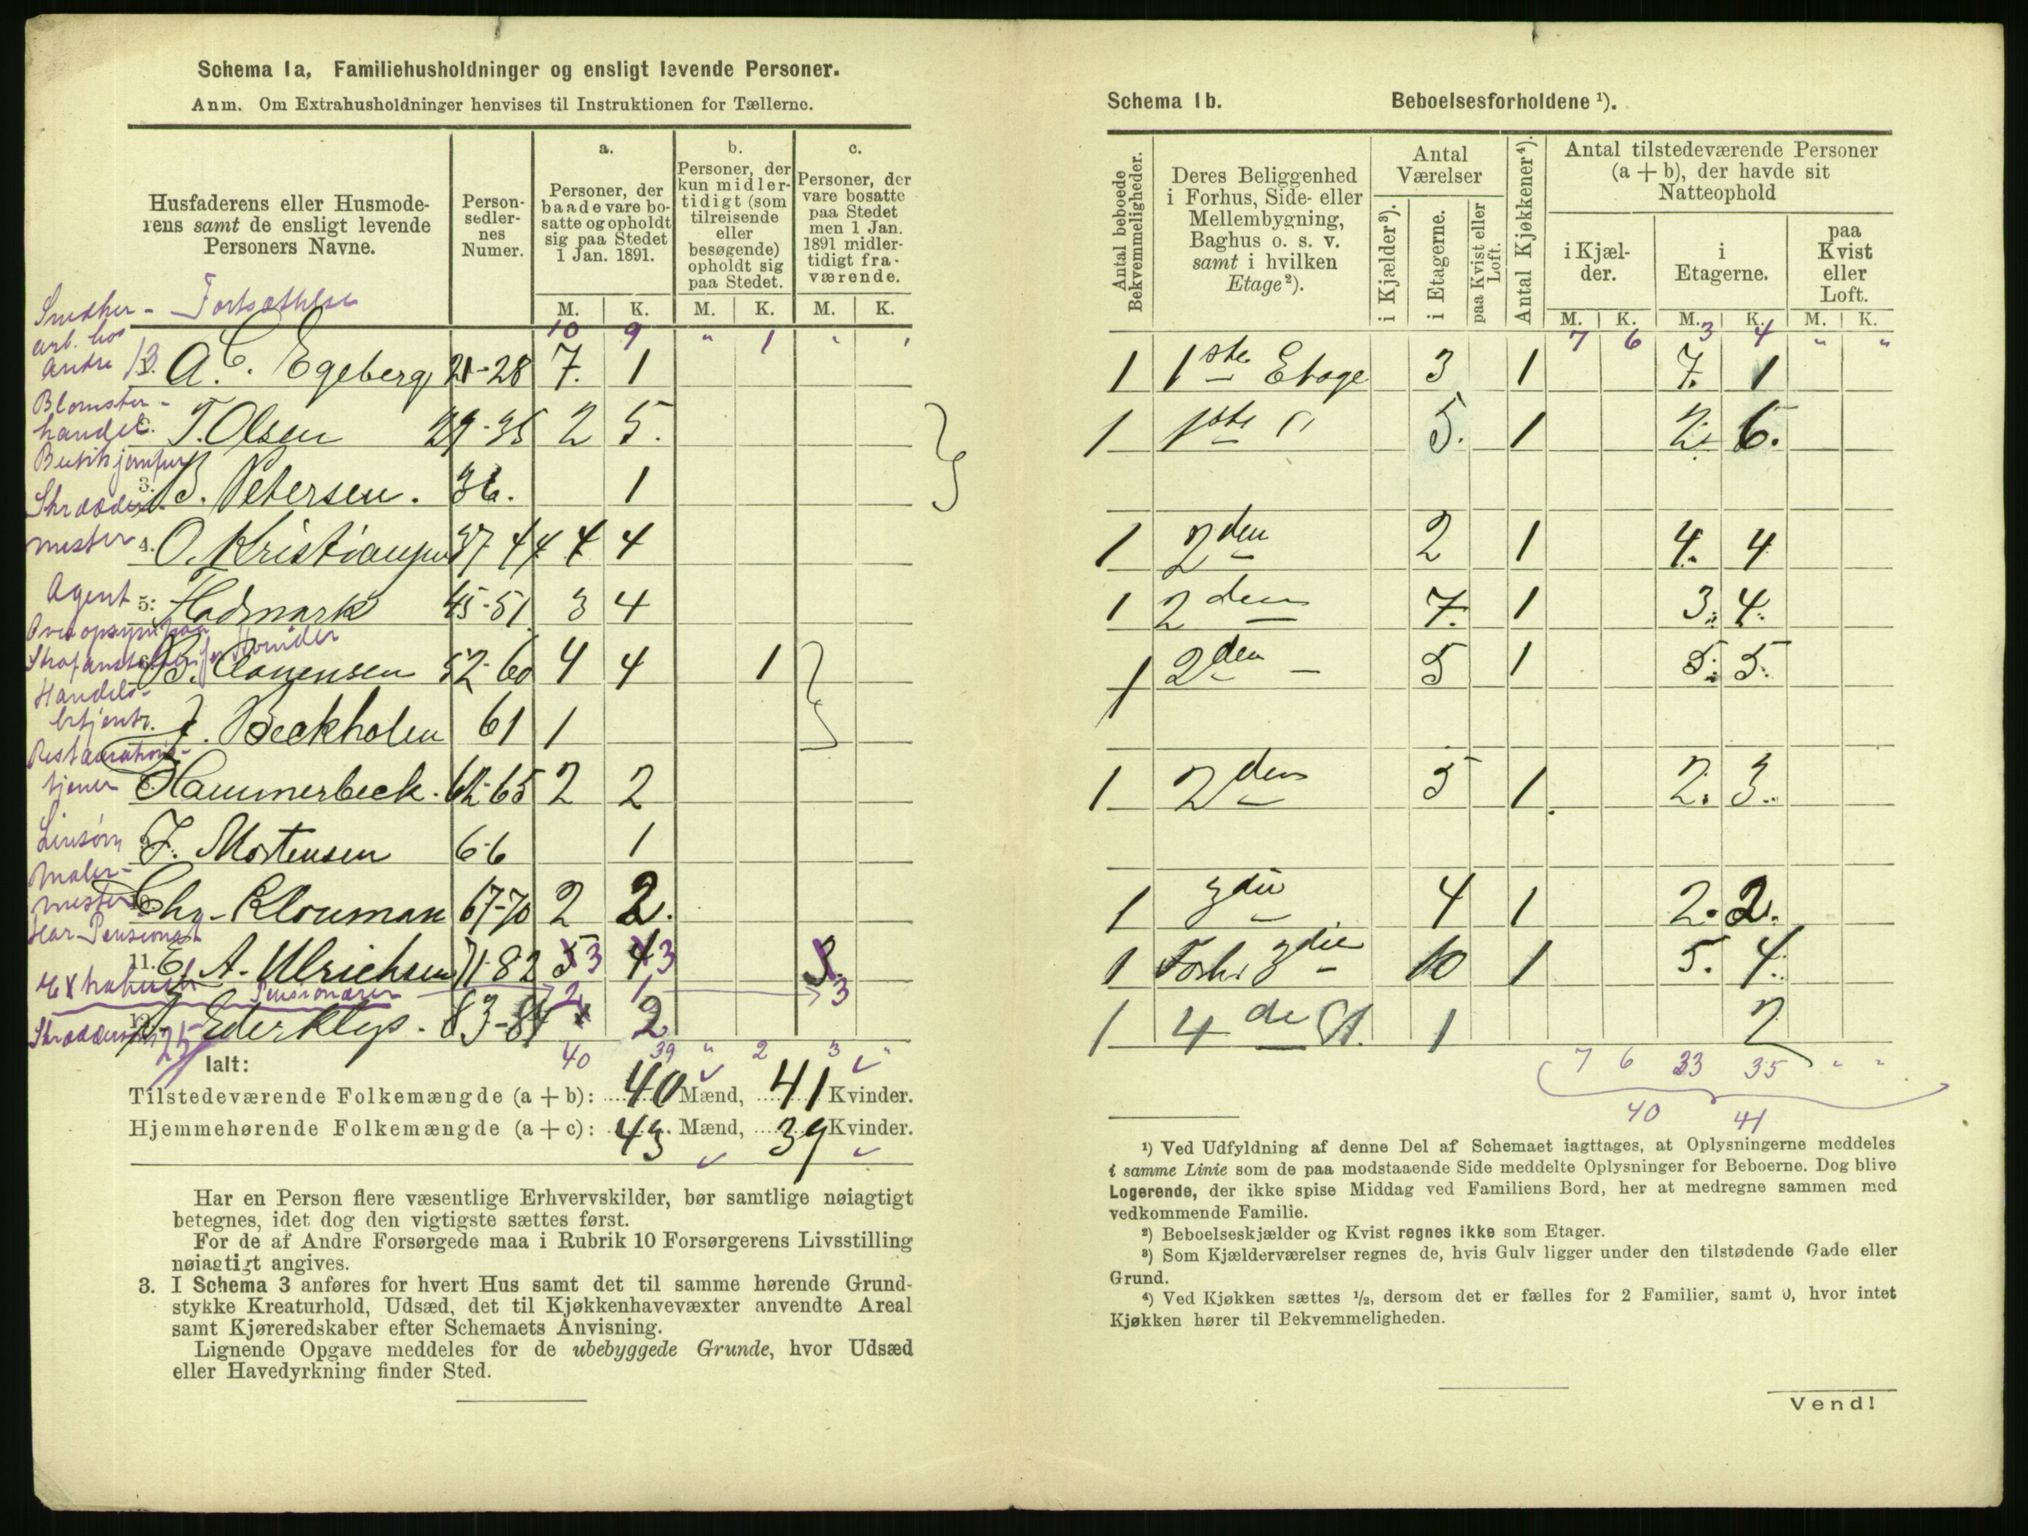 Schema 1a, Familiehusholdninger og ensligt levende Personer.
Anm. Om Extrahusholdninger henvises til Instruktionen for Tællerne.
Husfaderens eller Husmoderens samt de ensligt levende Personers Navne.
Personsedlernes Numer.
a. Personer, der baade vare bosatte og opholdt sig paa Stedet 1 Jan. 1891.
b. Personer, der kun midlertidigt (som tilreisende eller besøgende) opholdt sig paa Stedet.
c. Personer, der vare bosatte paa Stedet men 1 Jan. 1891 midlertidigt fraværende.
M. K. M. K. M. K.
Fortsættelse 10 9 " 1 " "
Snedker arb. hos Andre 13. A. C. Egeberg 21-28 7. 1
Blomsterhandel T. Olsen 29-35 2 5.
3. B. Petersen. 36. 1
Skræddermester 4. O. Kristiansen 37 44 4 4
Agent 5. Hadmark 45-51 3 4
B. Clauensen 52-60 4 4 1
Handelsbetjent J. Beckholen 61 1
Restaurationstjener Hammerbeck. 62-65 2 2
J. Mortensen 66 1
Malermester Chr. Klouman 67-70 2 2.
Har Pensionat 11. E. A. Ulrichsen 71-82 5 3 4 3 3.
Pensionærer 2 1 3
12. Ederklep. 83-84 2
25
40 39 " 2 3 "
Ialt:
Tilstedeværende Folkemængde (a + b): 40 Mænd, 41 Kvinder.
Hjemmehørende Folkemængde (a + c): 43 Mænd, 39 Kvinder.
Har en Person flere væsentlige Erhvervskilder, bør samtlige nøiagtigt
betegnes, idet dog den vigtigste sættes først.
For de af Andre Forsørgede maa i Rubrik 10 Forsørgerens Livsstilling
nøiagtigt angives.
3. I Schema 3 anføres for hvert Hus samt det til samme hørende Grund-
stykke Kreaturhold, Udsæd, det til Kjøkkenhavevæxter anvendte Areal
samt Kjøreredskaber efter Schemaets Anvisning.
Lignende Opgave meddeles for de ubebyggede Grunde, hvor Udsæd
eller Havedyrkning finder Sted.
Schema 1b. Beboelsesforholdene ¹).
Antal beboede Bekvemmeligheder.
Deres Beliggenhed i Forhus, Side- eller Mellembygning, Baghus o. s. v. samt i hvilken Etage²).
Antal Værelser
i Kjælder³).
i Etagerne.
paa Kvist eller Loft.
Antal Kjøkkener⁴).
Antal tilstedeværende Personer (a + b), der havde sit Natteophold
i Kjælder.
i Etagerne.
paa Kvist eller Loft.
M. K. M. K. M. K.
7 6 3 4 " "
1 1ste Etage 3 1 7. 1
1 1ste " 5. 1 2. 6.
1 2den 2 1 4. 4
1 2den 7. 1 3. 4.
1 2den — 5 1 5. 5.
1 2den 5 1. 2. 3.
1 3die 4 1 2. 2.
1 Forh. 3die 10 1 5. 4.
1 4de Et. 1 2
7 6 33 35 " "
40 41
¹) Ved Udfyldning af denne Del af Schemaet iagttages, at Oplysningerne meddeles
i samme Linie som de paa modstaaende Side meddelte Oplysninger for Beboerne. Dog blive
Logerende, der ikke spise Middag ved Familiens Bord, her at medregne sammen med
vedkommende Familie.
²) Beboelseskjælder og Kvist regnes ikke som Etager.
³) Som Kjælderværelser regnes de, hvis Gulv ligger under den tilstødende Gade eller
Grund.
⁴) Ved Kjøkken sættes ½, dersom det er fælles for 2 Familier, samt 0, hvor intet
Kjøkken hører til Bekvemmeligheden.
Vend!